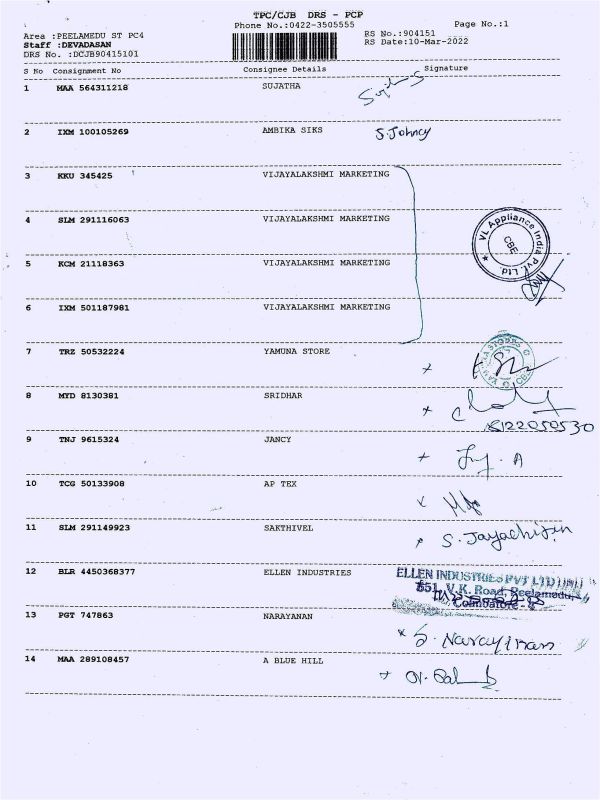 TPC/CJB DRS - PCP
Phone No.:0422-3505555 Page No.:1
Area :PEELAMEDU ST PC4 RS No.:904151
Staff :DEVADASAN RS Date:10-Mar-2022
DRS No. :DCJB90415101
S No Consignment No Consignee Details Signature
1 MAA 564311218 SUJATHA
2 IXM 100105269 AMBIKA SIKS S. Johncy
3 KKU 345425 VIJAYALAKSHMI MARKETING
4 SLM 291116063 VIJAYALAKSHMI MARKETING
VL Appliance India Pvt. Ltd. ★
CBE
5 KCM 21118363 VIJAYALAKSHMI MARKETING
6 IXM 501187981 VIJAYALAKSHMI MARKETING
7 TRZ 50532224 YAMUNA STORE
8 MYD 8130381 SRIDHAR
9 TNJ 9615324 JANCY
10 TCG 50133908 AP TEX
11 SLM 291149923 SAKTHIVEL
12 BLR 4450368377 ELLEN INDUSTRIES ELLEN INDUSTRIES PVT LTD
551, V.K. Road, Peelamedu,
Coimbatore - 4
13 PGT 747863 NARAYANAN
14 MAA 289108457 A BLUE HILL